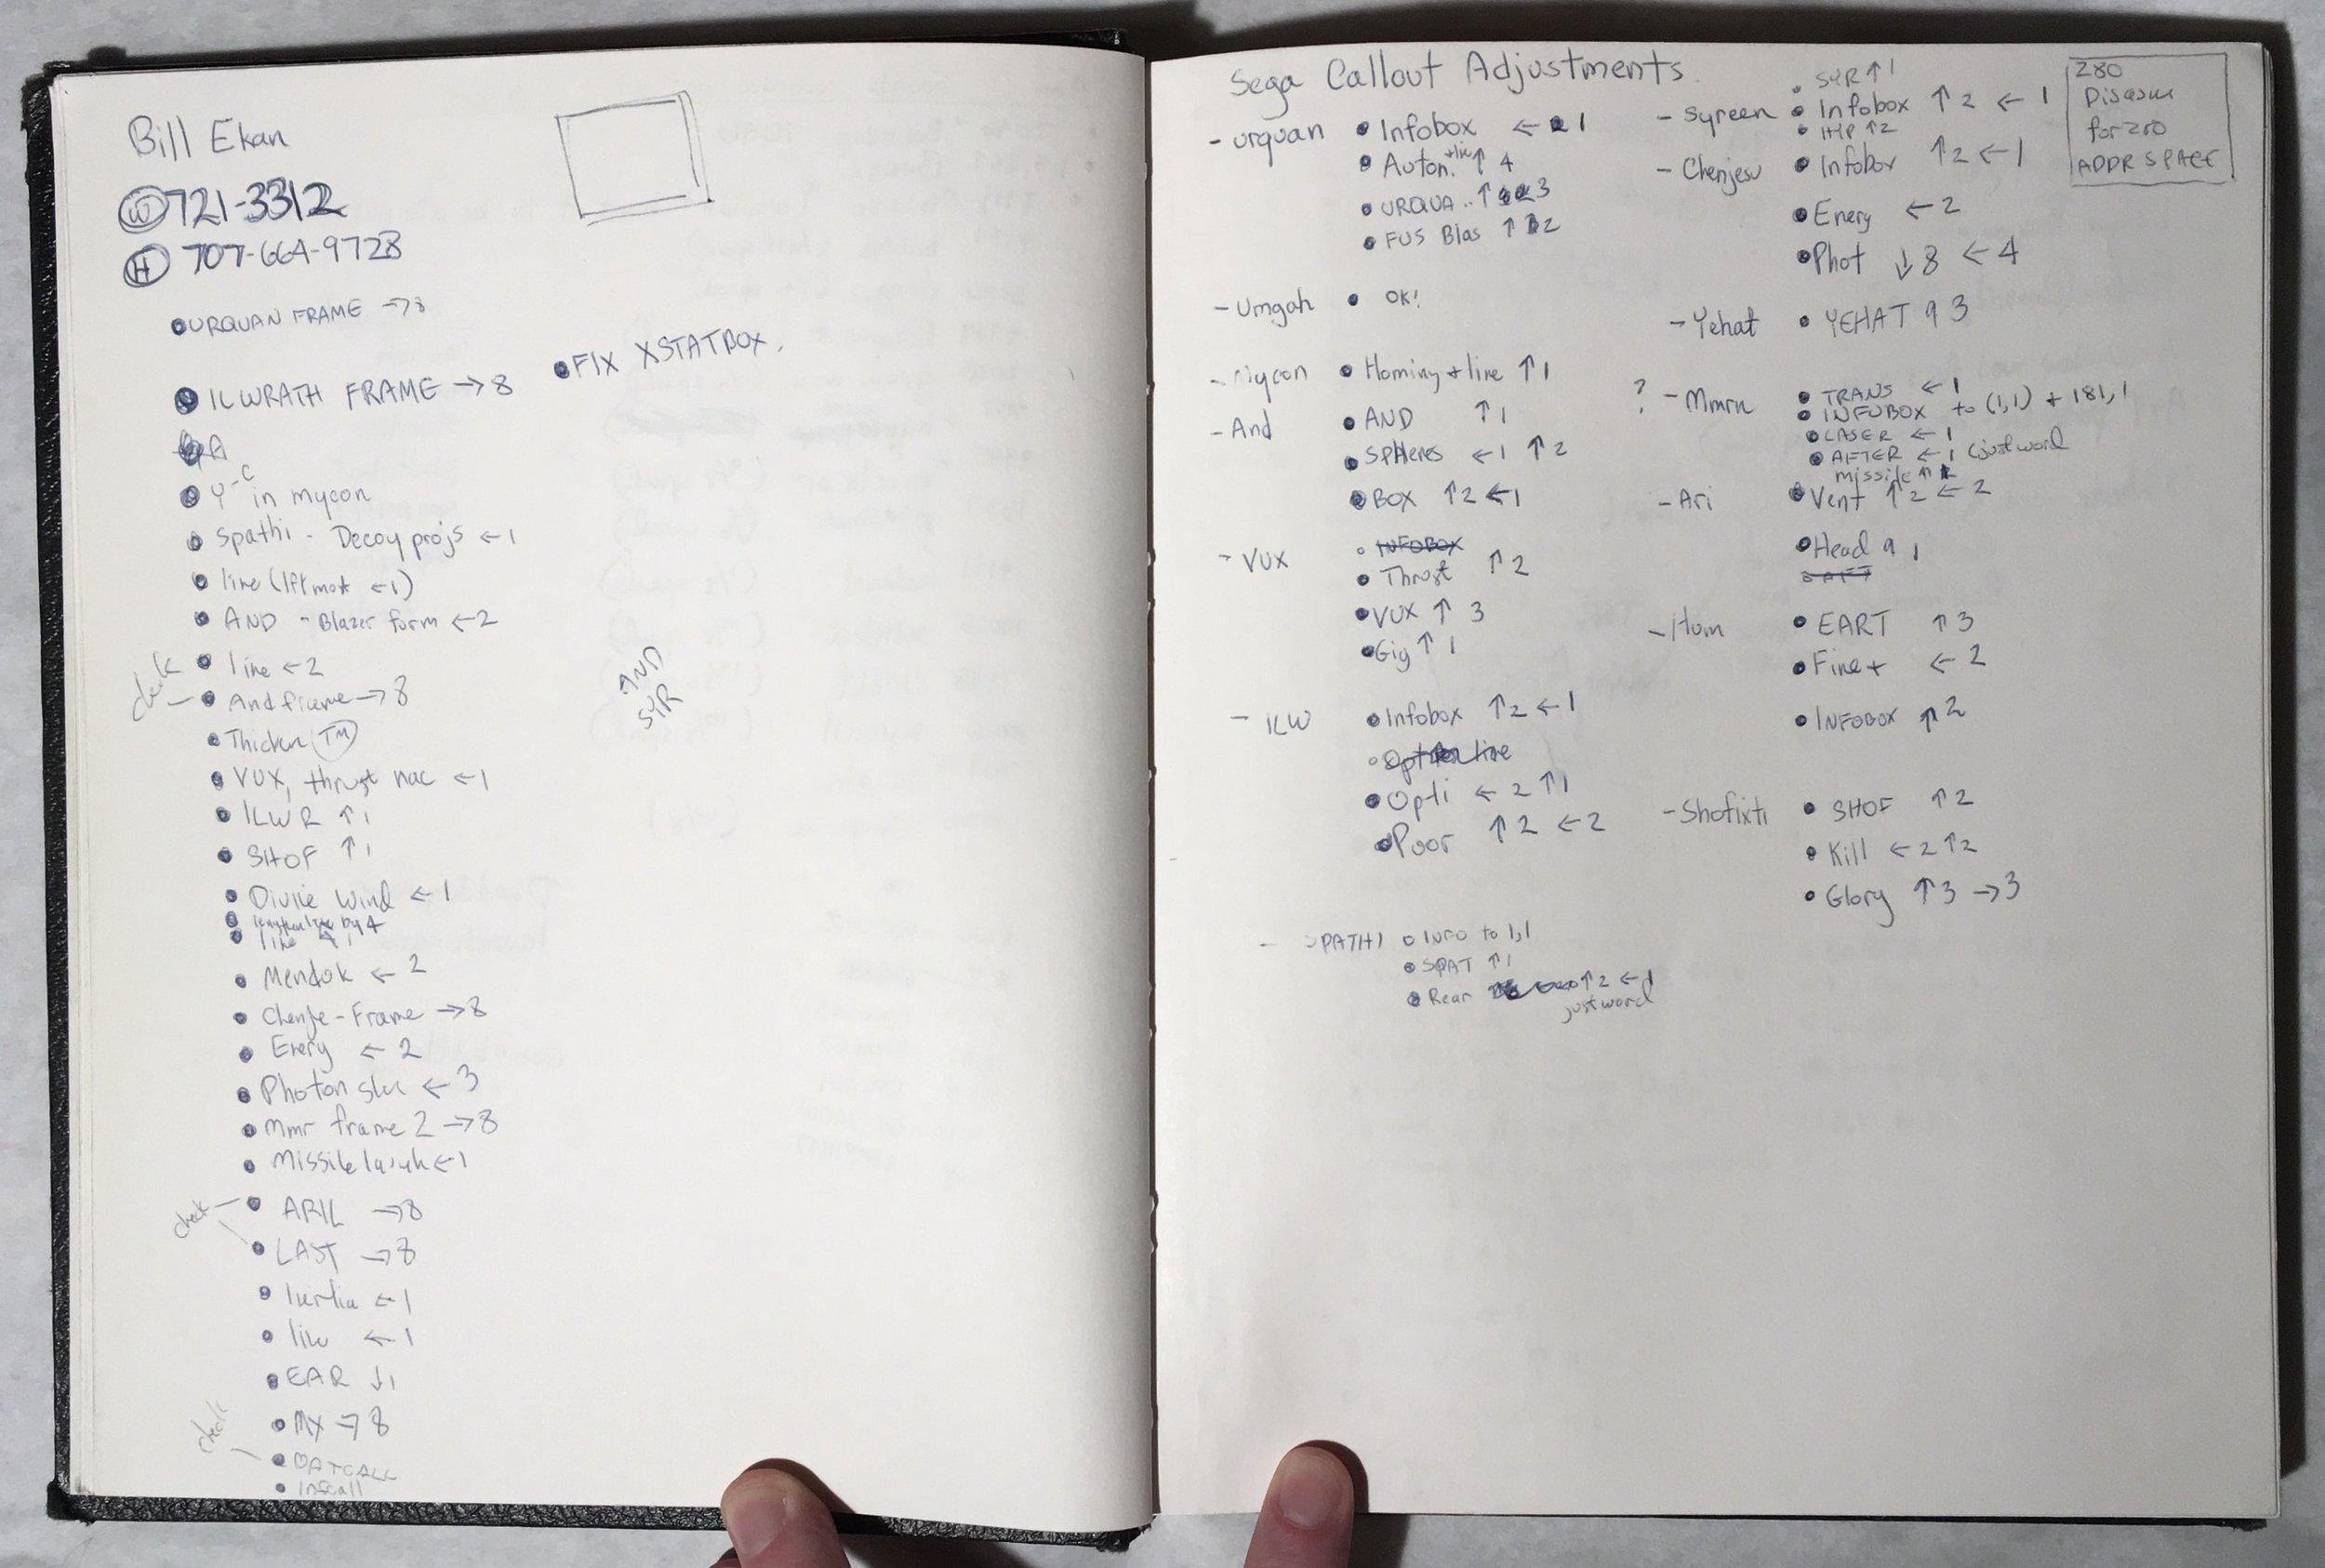 Bill Ekan
(W) 721-3312
(H) 707-664-9728
• URQUAN FRAME →8
• FIX XSTATBOX.
• ILWRATH FRAME →8
A
• Y-C in mycon
• Spathi - Decoy projs ←1
• line (lftmost ←1)
• AND - Blazer form ←2
• line ←2
check
• And frame →8
AND
SYR
• Thicken (TM)
• VUX, thrust nac ←1
• ILWR ↑1
• SHOF ↑1
• Divine Wind ←1
• line by 4
• line 1
• Mendok ←2
• Chenje-Frame →8
• Enery ←2
• Photon ←3
• Mmr frame 2 →8
• Missile ←1
check
• ARIL →8
• LAST →8
• Inertia ←1
• line ←1
• EAR ↓1
• MX →8
check
• DATCALL
• Infcall
Sega Callout Adjustments
- Urquan • Infobox ← 1
• Auton. + line ↑ 4
• URQUA.. ↑ 3
• FUS Blas ↑ 2
- Umgah • OK!
- Mycon • Homing + line ↑1
- And • AND ↑1
• Spheres ←1 ↑2
• BOX ↑2 ←1
- VUX • INFOBOX
• Thrust ↑2
• VUX ↑ 3
• Gig ↑ 1
- ILW • Infobox ↑2 ←1
• Opti line
• Opti ← 2 ↑1
• Poor ↑2 ←2
- SPATHI • INFO to 1,1
• SPAT ↑1
• Rear ↑2 ←1
just word
• SYR ↑1
- Syreen • Infobox ↑2 ← 1
• HYP ↑2
- Chenjesu • Infobox ↑2 ←1
• Enery ←2
• Phot ↓8 ←4
- Yehat • YEHAT ↑ 3
? - Mmrn • TRANS ←1
• INFOBOX to (1,1) + 181,1
• LASER ←1
• AFTER ←1 (just word
missile ↑
- Ari • Vent ↑2 ←2
• Head ↑ 1
- Hum • EART ↑3
• Fine + ←2
• INFOBOX ↑2
- Shofixti • SHOF ↑2
• Kill ←2 ↑2
• Glory ↑3 →3
Z80
Disasm
for Z80
ADDR SPACE